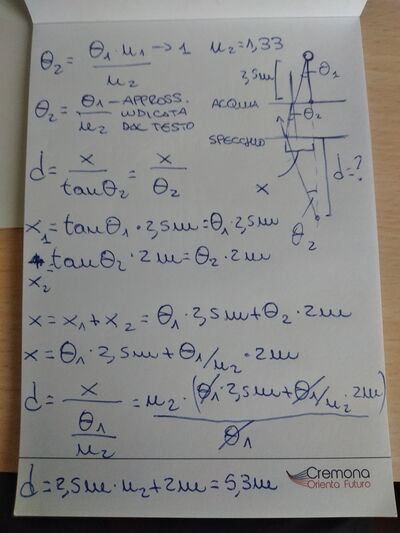 θ₂ = θ₁·μ₁→1 / μ₂   μ₂=1,33
2,5m   θ₁
θ₂ = θ₁ / μ₂ - APPROSS. INDICATA DAL TESTO
ACQUA
θ₂
SPECCHIO
d = x / tanθ₂ = x / θ₂   d=?
x
θ₂
x₁ = tanθ₁ · 2,5m = θ₁ · 2,5m
x₂ = tanθ₂ · 2m = θ₂ · 2m
x = x₁ + x₂ = θ₁ · 2,5m + θ₂ · 2m
x = θ₁ · 2,5m + θ₁/μ₂ · 2m
d = x / (θ₁/μ₂) = μ₂ · (θ₁ · 2,5m + θ₁/μ₂ · 2m) / θ₁
d = 2,5m · μ₂ + 2m = 5,3m
Cremona
Orienta Futuro